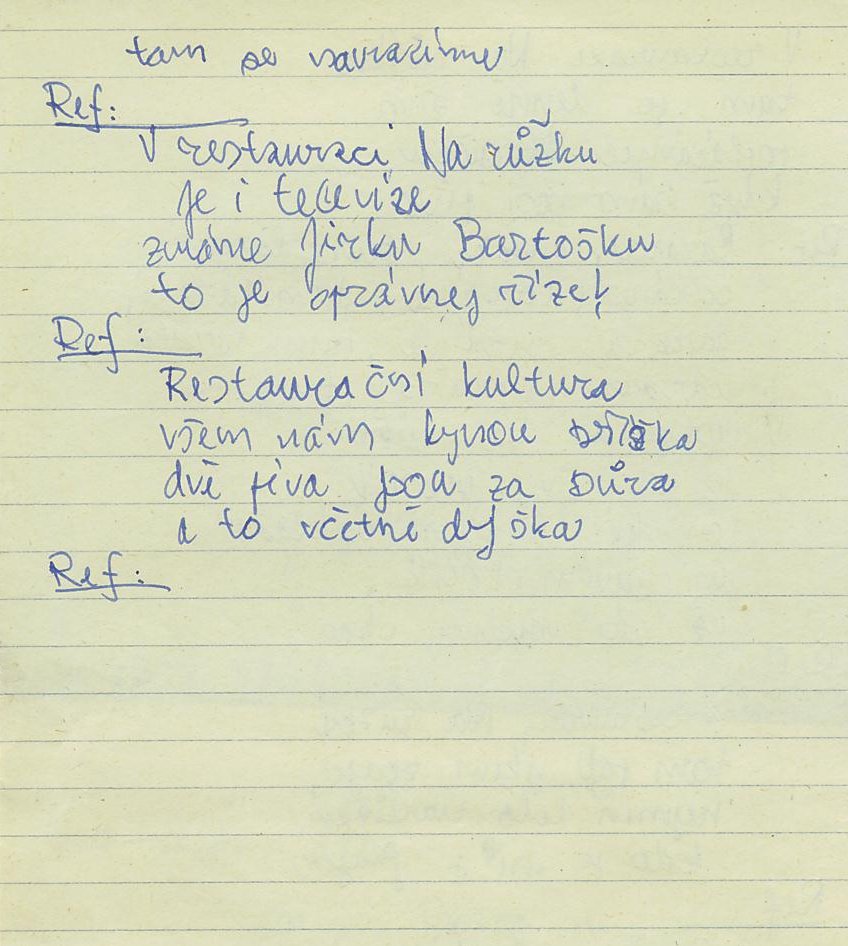 tam se navracíme
Ref:
V restauraci Na růžku
je i televize
známe Jirku Bartošku
to je správnej říze!
Ref:
Restaurační kultura
všem nám kynou bříška
dvě piva jsou za bůra
a to včetně dyška
Ref: